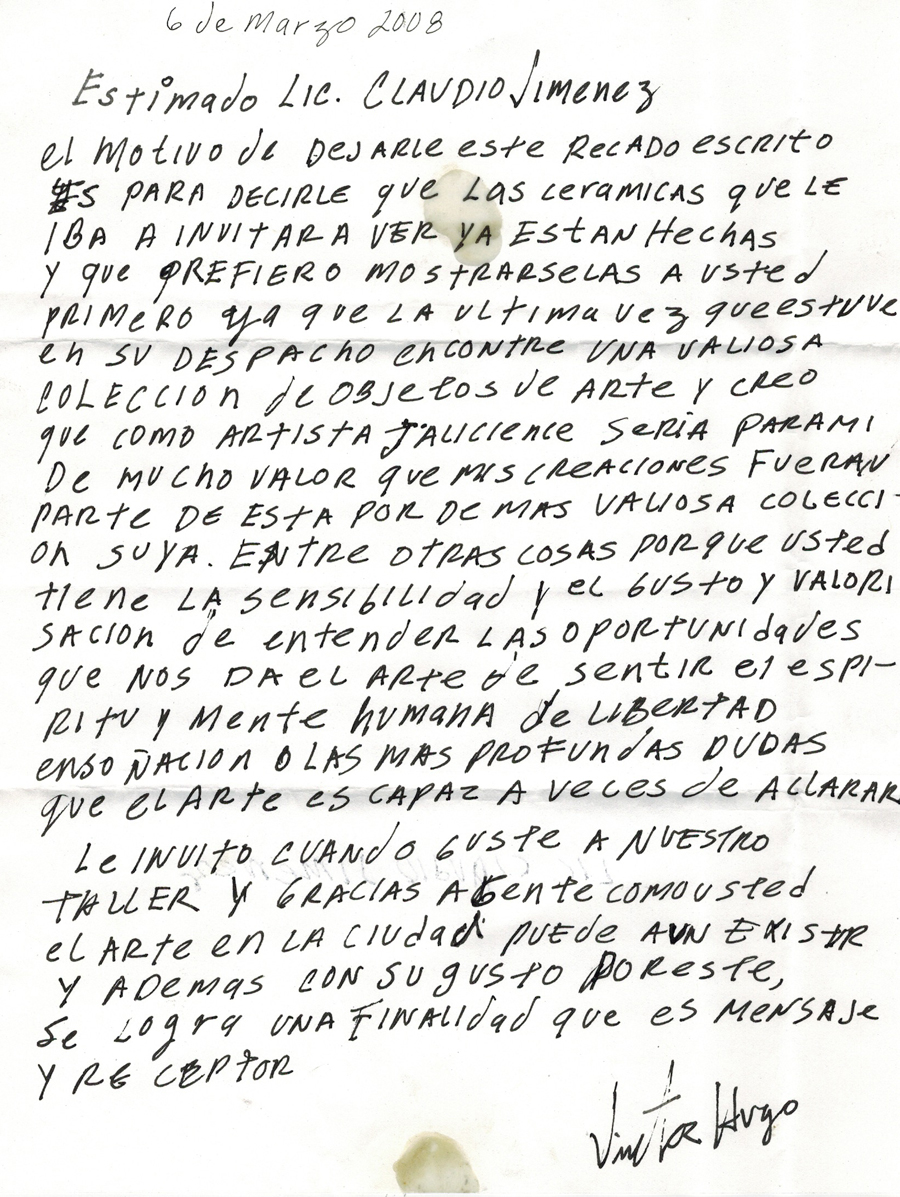 6 de Marzo 2008
Estimado Lic. CLAUDIO Jimenez
el Motivo de DEJARLE este RECADO escrito
ES PARA DECIRLE que Las ceramicas que LE
IBA A INVITAR A VER YA ESTAN HECHAS
Y que PREFIERO MOSTRARSELAS A USted
PRIMERO ya que LA ULtima vez que estuve
en SU DESPACHO encontre UNA VALIOSA
COLECCION de OBJetos de ARTE Y CREO
que COMO ARTISTA JALICIENCE SERIA PARA MI
De MUCHO VALOR que MIS CREACIONES FUERAN
PARTE DE ESTA POR DE MAS VALIOSA COLECCI-
ON SUYA. ENTRE OTRAS COSAS PORQUE USted
tiene LA sensibilidad y el GUSTO Y VALORI
SACION de entender LAS OPORTUNIdades
que NOS DA EL ARTE de SENTIR el ESPI-
RITU y Mente humana de LIBERTAD
ENSOÑACION O LAS MAS PROFUNDAS DUDAS
que el ARTE es CAPAZ A VECES de ACLARAR
Le INVITO CUANDO GUSTE A NUESTRO
TALLER Y GRACIAS A Gente COMO USted
el ARTE en LA Ciudad PUEDE AUN EXISTIR
Y ADEMAS CON SU gusto POR ESTE,
Se Logra UNA FINALIDAD que es MENSAJE
Y RECEPTOR
Victor Hugo